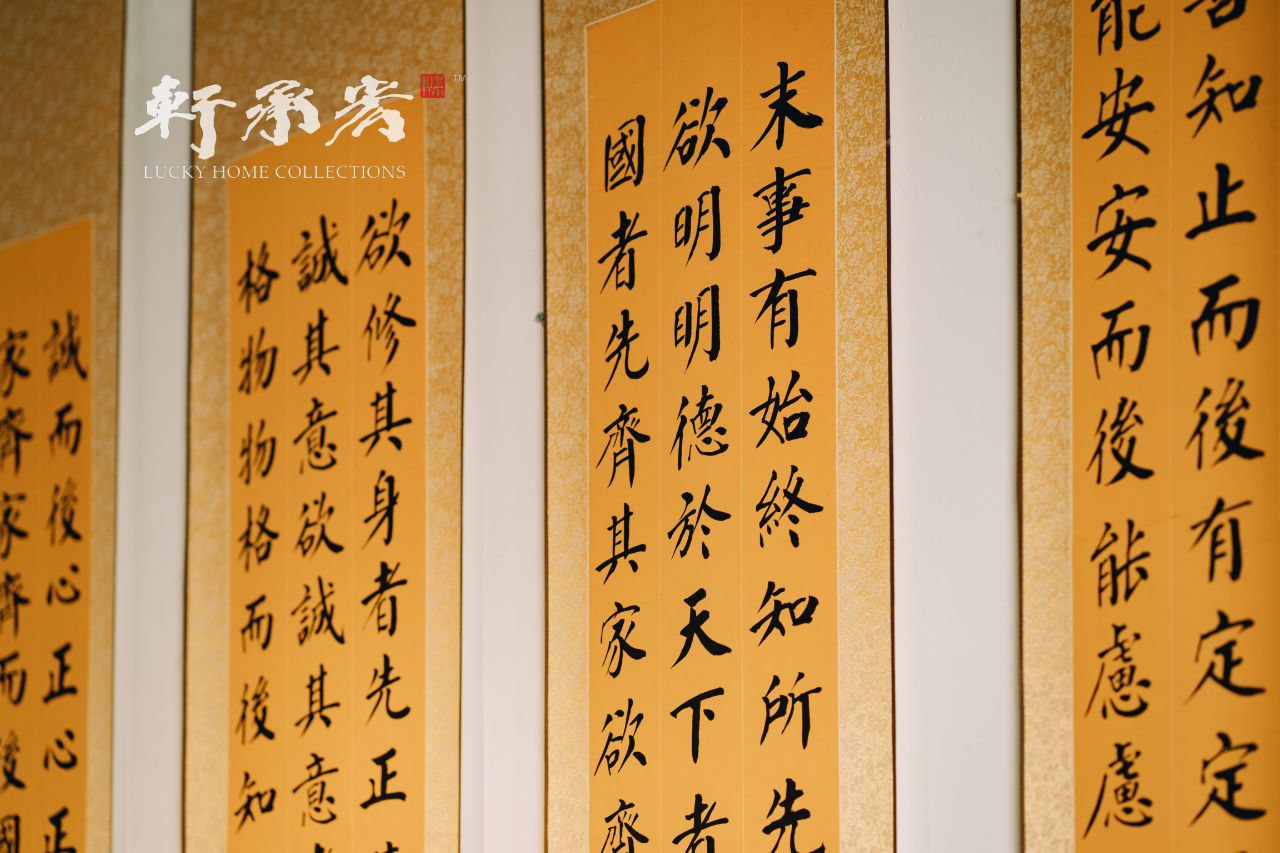 軒承
TM
LUCKY HOME COLLECTIONS
善知止而後有定定
能安安而後能慮慮
末事有始終知所先
欲明明德於天下者
國者先齊其家欲齊
欲修其身者先正
誠其意欲誠其意
格物物格而後知
誠而後心正心正
家齊家齊而後國